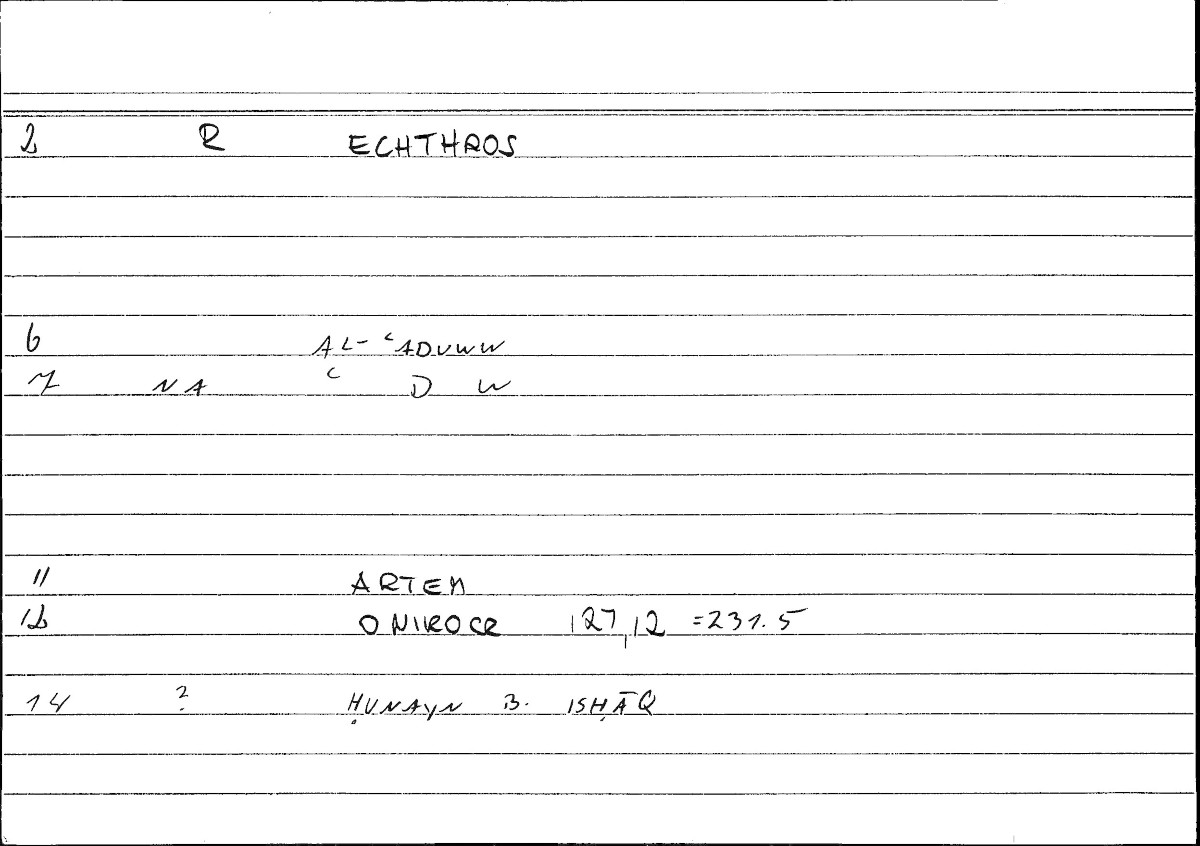 2 R ECHTHROS
6 AL-ʿADUWW
7 NA ʿ D W
11 ARTEM
12 ONIROCR 127,12 =231.5
14 ? ḤUNAYN B. ISḤĀQ